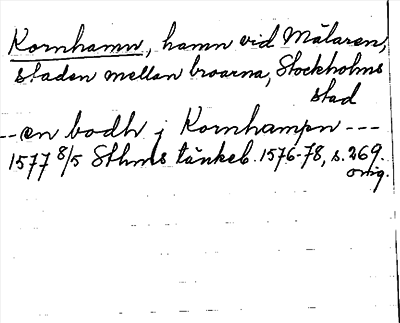 Kornhamn, hamn vid Mälaren,
staden mellan broarna, Stockholms
stad
--en bodh j Kornhampn ---
1577 8/5 Sthms tänkeb. 1576-78, s. 269.
orig.